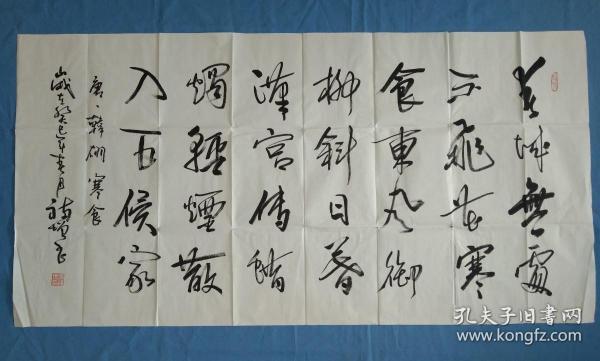 春城無處
不飛花寒
食東風御
柳斜日暮
漢宮傳蜡
燭輕煙散
入五侯家
唐、韓翃寒食
嵗在癸巳年春月書
孔夫子旧书网
www.kongfz.com